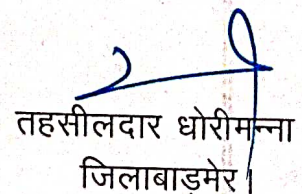 तहसीलदार धोरीमन्ना
जिलाबाड़मेर।